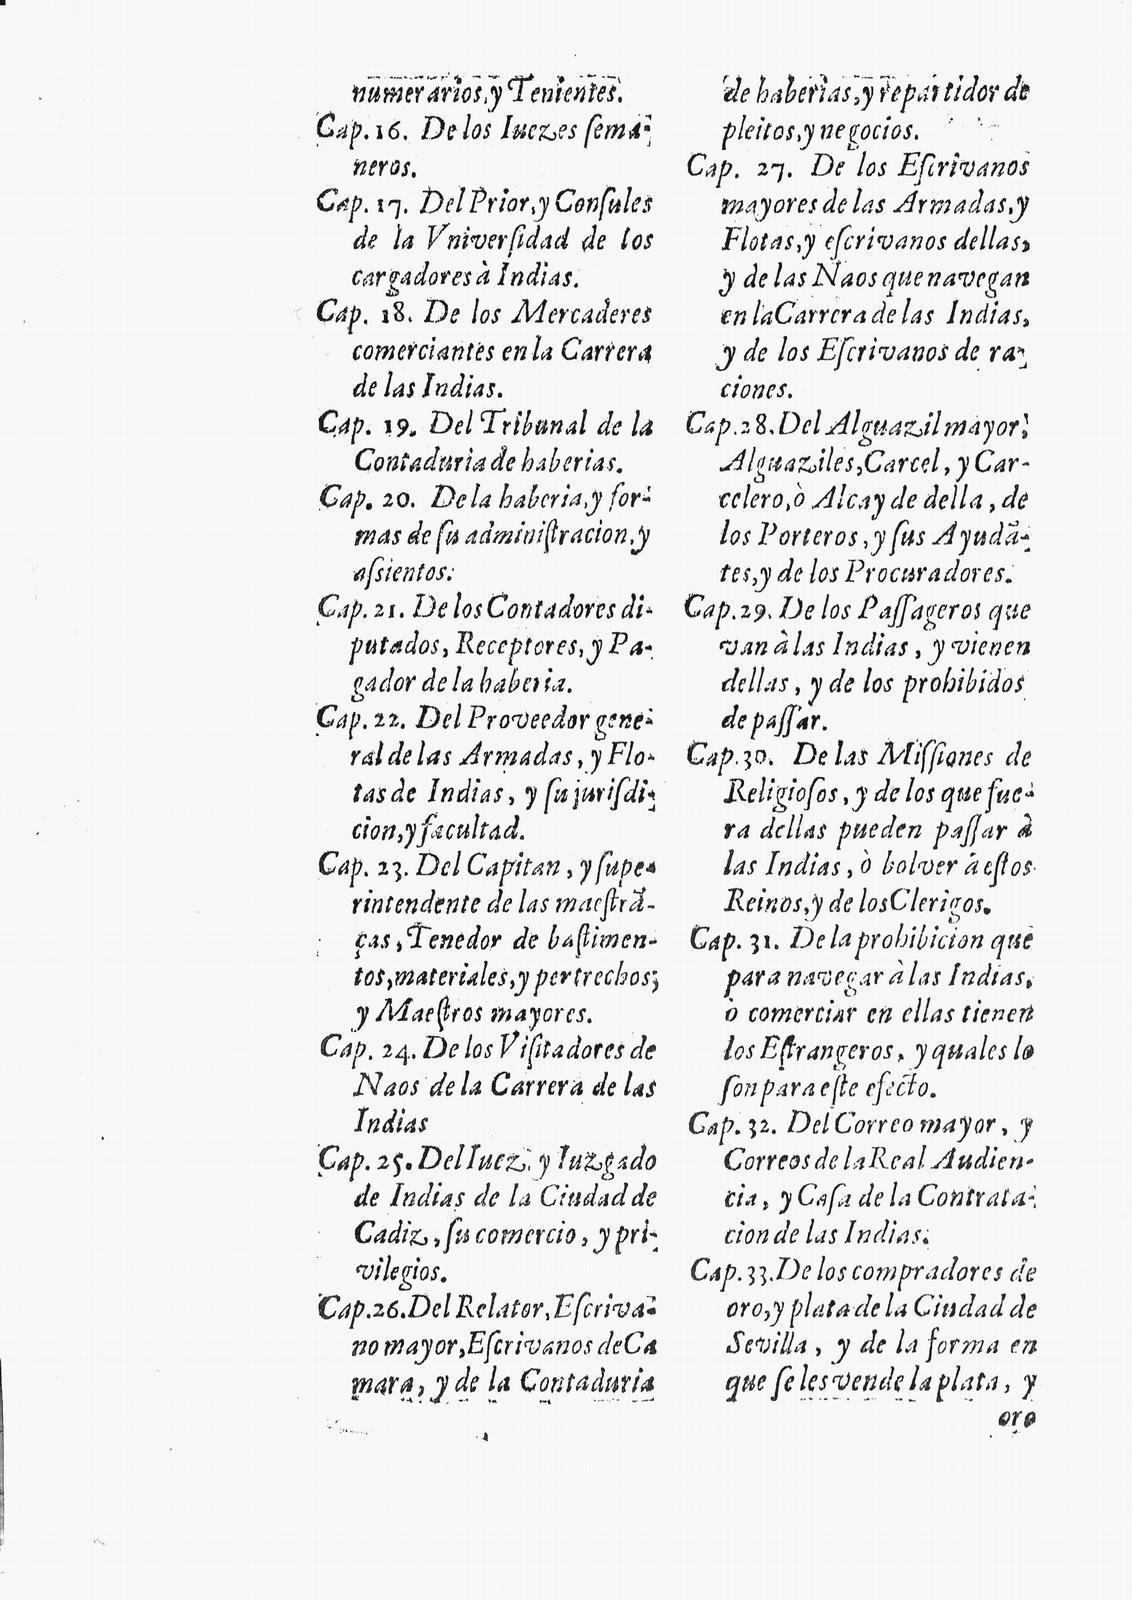 numerarios,y Tenientes.
Cap. 16. De los Iuezes ſema-
neros.
Cap. 17. Del Prior,y Conſules
de la Vniverſidad de los
cargadores à Indias.
Cap. 18. De los Mercaderes
comerciantes en la Carrera
de las Indias.
Cap. 19. Del Tribunal de la
Contaduria de haberias.
Cap. 20. De la haberia,y for-
mas de ſu adminiſtracion,y
aſsientos.
Cap. 21. De los Contadores di-
putados, Receptores, y Pa-
gador de la haberia.
Cap. 22. Del Proveedor gene-
ral de las Armadas, y Flo-
tas de Indias, y ſu juriſdi-
cion,y facultad.
Cap. 23. Del Capitan, y ſupe-
rintendente de las maeſtrã-
ças, Tenedor de baſtimen-
tos,materiales,y pertrechos;
y Maeſtros mayores.
Cap. 24. De los Viſitadores de
Naos de la Carrera de las
Indias
Cap. 25. Del Iuez, y Iuzgado
de Indias de la Ciudad de
Cadiz, ſu comercio, y pri-
vilegios.
Cap.26.Del Relator,Eſcriva-
no mayor,Eſcrivanos de Ca
mara, y de la Contaduria
de haberias,y repartidor de
pleitos,y negocios.
Cap. 27. De los Eſcrivanos
mayores de las Armadas,y
Flotas,y eſcrivanos dellas,
y de las Naos que navegan
en la Carrera de las Indias,
y de los Eſcrivanos de ra-
ciones.
Cap.28.Del Alguazil mayor,
Alguaziles,Carcel, y Car-
celero,ò Alcayde della, de
los Porteros, y ſus Ayudã-
tes,y de los Procuradores.
Cap.29. De los Paſſageros que
van à las Indias, y vienen
dellas, y de los prohibidos
de paſſar.
Cap.30. De las Miſſiones de
Religioſos, y de los que fue-
ra dellas pueden paſſar à
las Indias, ò bolver à eſtos
Reinos,y de los Clerigos.
Cap. 31. De la prohibicion que
para navegar à las Indias,
ò comerciar en ellas tienen
los Eſtrangeros, y quales lo
ſon para eſte efecto.
Cap. 32. Del Correo mayor, y
Correos de la Real Audien-
cia, y Caſa de la Contrata-
cion de las Indias.
Cap.33.De los compradores de
oro,y plata de la Ciudad de
Sevilla, y de la forma en
que ſe les vende la plata, y
oro